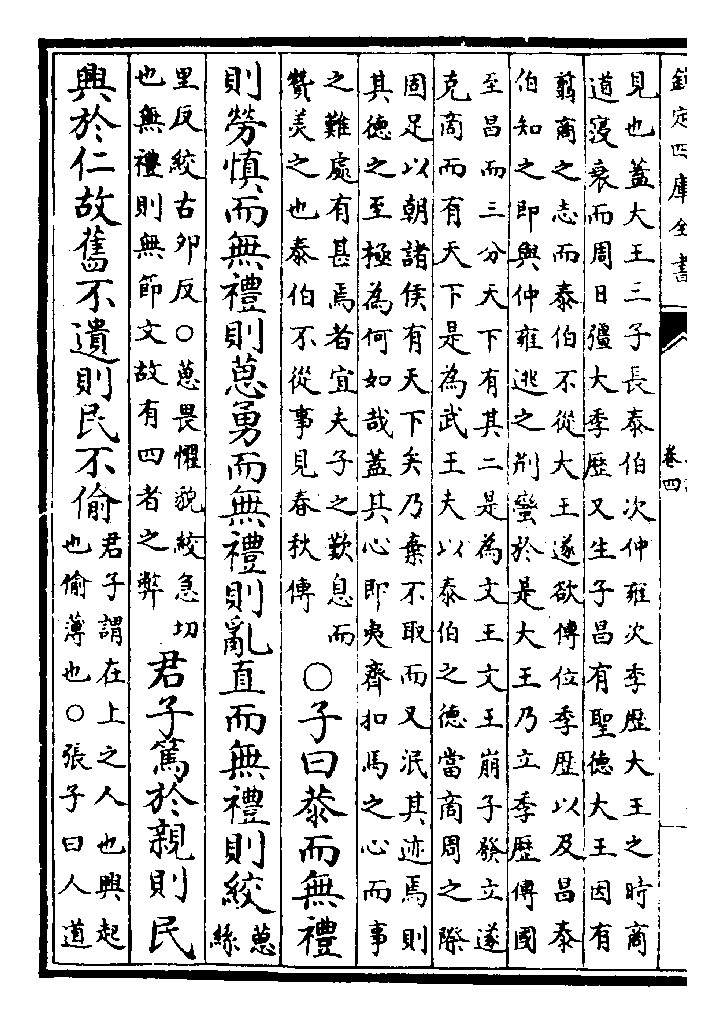 欽定四庫全書
卷四
見也蓋大王三子長泰伯次仲雍次季歷大王之時商
道寖衰而周日彊大季歷又生子昌有聖德大王因有
翦商之志而泰伯不從大王遂欲傳位季歷以及昌泰
伯知之即與仲雍逃之荊蠻於是大王乃立季歷傳國
至昌而三分天下有其二是為文王文王崩子發立遂
克商而有天下是為武王夫以泰伯之德當商周之際
固足以朝諸侯有天下矣乃棄不取而又泯其迹焉則
其德之至極為何如哉蓋其心即夷齊扣馬之心而事
之難處有甚焉者宜夫子之歎息而
贊美之也泰伯不從事見春秋傳
○子曰恭而無禮
則勞慎而無禮則葸勇而無禮則亂直而無禮則絞
葸
絲
里反絞古卯反○葸畏懼貌絞急切
也無禮則無節文故有四者之弊
君子篤於親則民
興於仁故舊不遺則民不偷
君子謂在上之人也興起
也偷薄也○張子曰人道